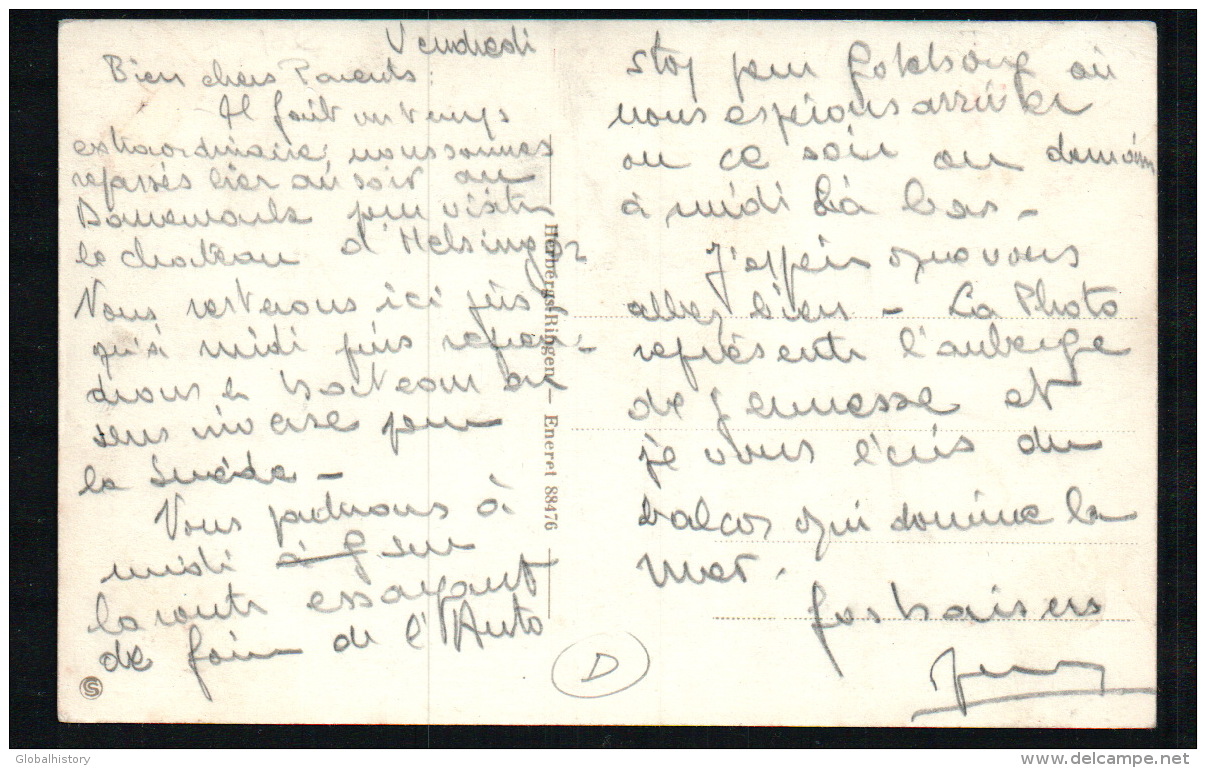 Vendredi
Bien chers Parents :
Il fait un temps
extraordinaire; nous sommes
repassés hier au soir au
Dannemark pour visiter
le chateau d'Helsingor
Nous resterons ici jus
qu'à midi puis repren-
drons le bateau en
sens inverse pour
la Suède -
Nous partirons à
midi sur
la route essayant
de faire de l'Auto
Stop pour Goteborg où
nous espérons arriver
ou ce soir ou demain
à midi Là bas -
J'espère que vous
allez bien - La Photo
représente l'auberge
de jeunesse et
je vous écris du
balcon qui domine la
mer.
Gos baisers
Herbergs-Ringen - Eneret 88476
D
S
Globalhistory
www.delcampe.net